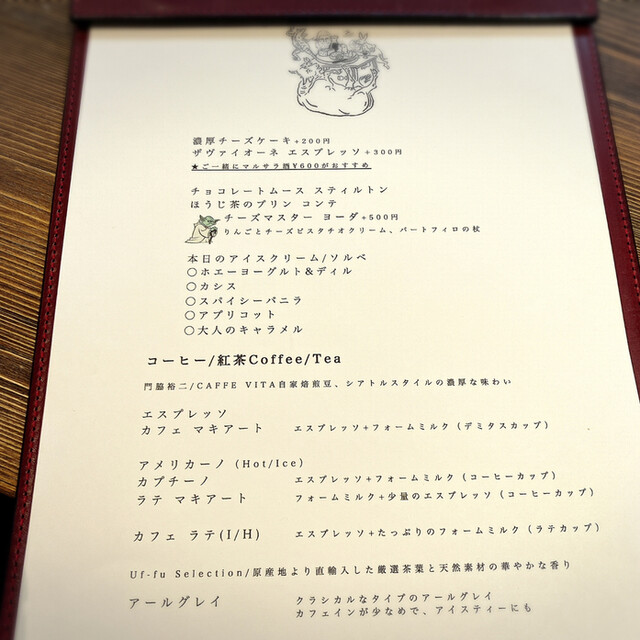 濃厚チーズケーキ+200円
ザヴァイオーネ エスプレッソ+300円
★ご一緒にマルサラ酒¥600がおすすめ
チョコレートムース スティルトン
ほうじ茶のプリン コンテ
チーズマスター ヨーダ+500円
りんごとチーズピスタチオクリーム、パートフィロの杖
本日のアイスクリーム/ソルベ
○ホエーヨーグルト&ディル
○カシス
○スパイシーバニラ
○アプリコット
○大人のキャラメル
コーヒー/紅茶Coffee/Tea
門脇裕二/CAFFE VITA自家焙煎豆、シアトルスタイルの濃厚な味わい
エスプレッソ
カフェ マキアート エスプレッソ+フォームミルク(デミタスカップ)
アメリカーノ(Hot/Ice)
カプチーノ エスプレッソ+フォームミルク(コーヒーカップ)
ラテ マキアート フォームミルク+少量のエスプレッソ(コーヒーカップ)
カフェ ラテ(I/H) エスプレッソ+たっぷりのフォームミルク(ラテカップ)
Uf-fu Selection/原産地より直輸入した厳選茶葉と天然素材の華やかな香り
アールグレイ クラシカルなタイプのアールグレイ
カフェインが少なめで、アイスティーにも